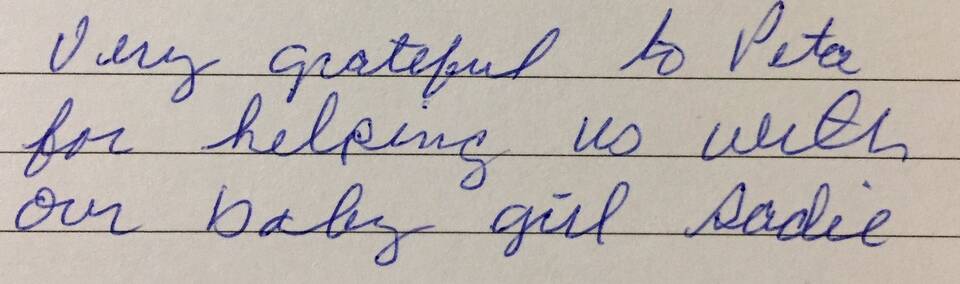 Very grateful to Peta
for helping us with
our baby girl Sadie